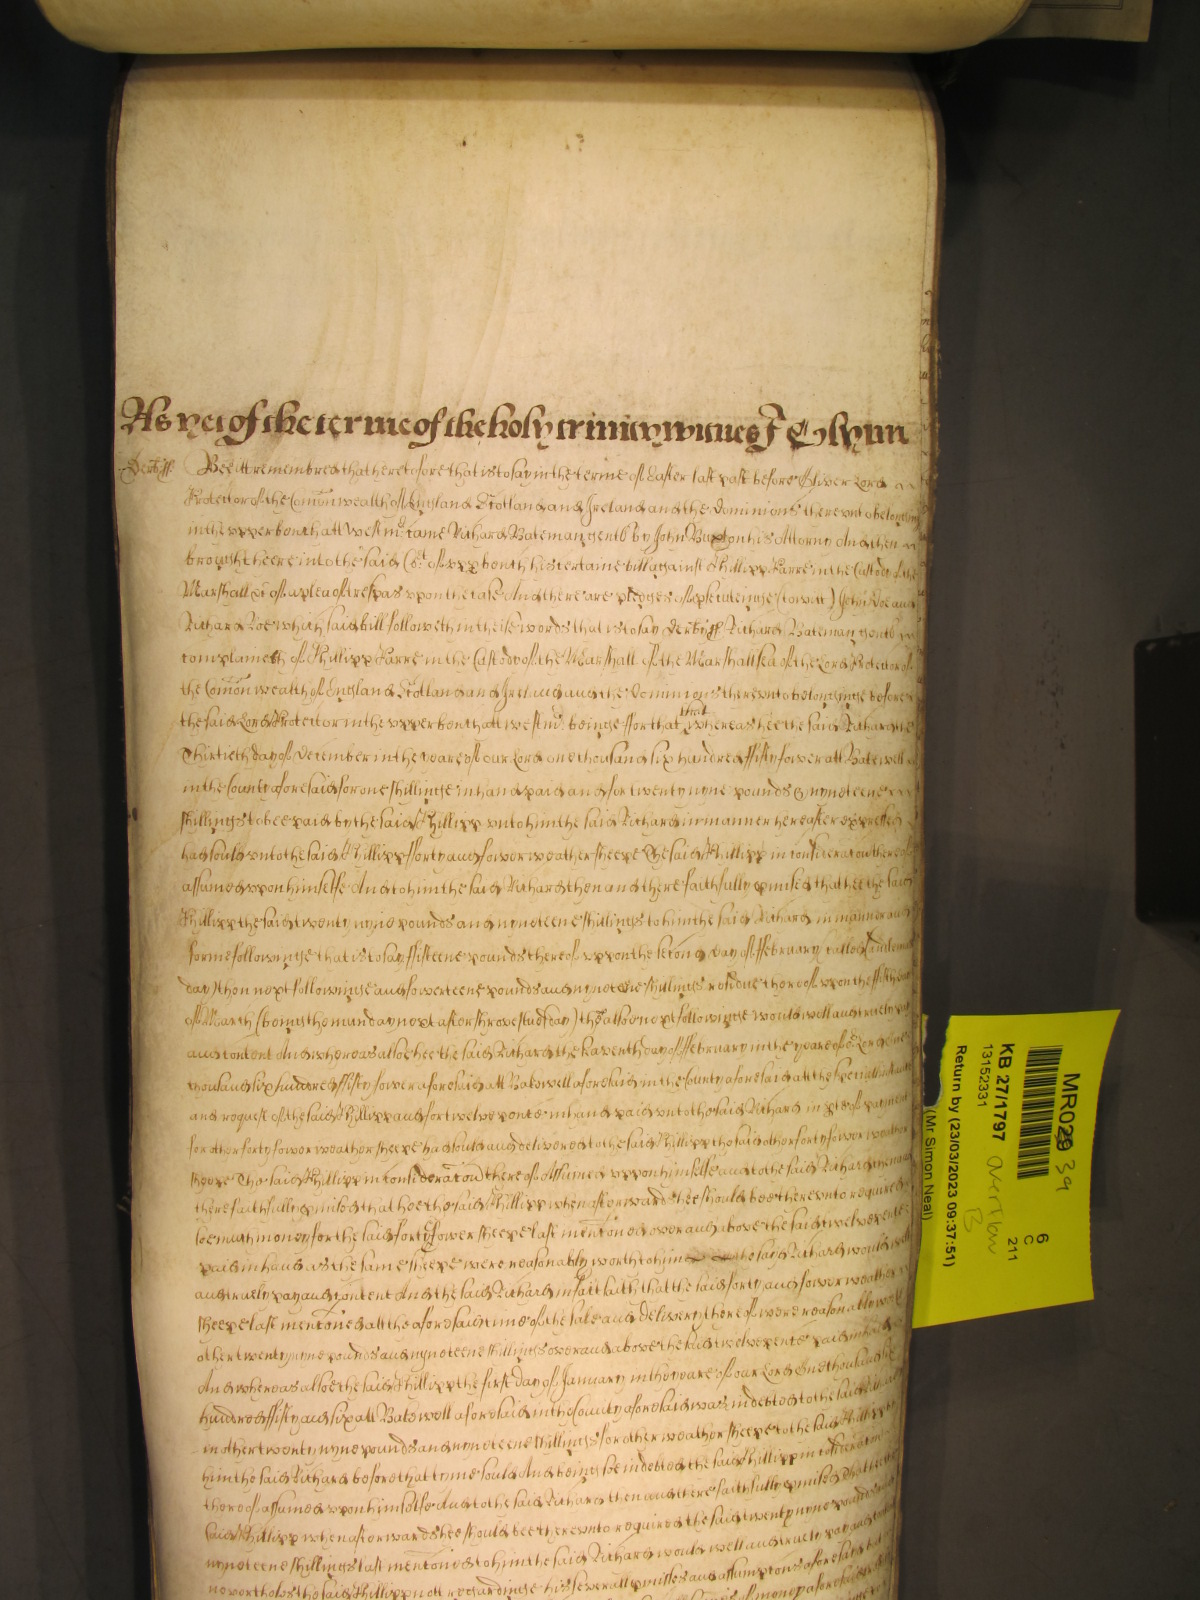 As yet of the terme of the holy trinity witnes J Glynn
Derb ss. Bee itt remembred that heretofore that is to say in the terme of Easter last past before Oliver Lord
Protector of the Comon wealth of England Scotland and Ireland and the Dominions thereunto belonging
in the upper bench att Westm came Richard Bateman gent by John Buxton his Attorny And then
brought heere into the said Court of upp bench his certaine bill against Phillipp Farre in the Custody of the
Marshall &c of a plea of trespas uppon the case And there are pledges of prosecuteinge (to witt) John Doe and
Richard Roe which said bill followeth in theise words that is to say Derb ss Richard Bateman gent
complaineth of Phillipp Farre in the Custody of the Marshall of the Marshallsea of the Lord Protector of
the Comon wealth of England Scotland and Ireland and the Dominions thereunto belonginge before
the said Lord Protector in the upper bench att westm beinge For that that whereas hee the said Richard the
Thirtieth day of December in the yeare of our Lord one thousand six hundred fifty fower att Batewell
in the County aforesaid for one shillinge in hand paid and for twenty nyne pounds & nyneteene
shillings to bee paid by the said Phillipp unto him the said Richard in manner hereafter expressed
had sould unto the said Phillipp forty and fower weather sheepe The said Phillipp in consideracon thereof
assumed upon himselfe And to him the said Richard then and there faithfully p'mised that hee the said
Phillipp the said twenty nyne pounds and nyneteene shillings to him the said Richard in manner and
forme followinge that is to say fifteene pounds thereof uppon the second day of February called Candlemas
day then next followinge and fowerteene pounds and nyneteene shillings residue thereof uppon the
of March (being the munday next after shrovetuesday) then alsoe next followinge would well and truely pay
and content And whereas alsoe hee the said Richard the seaventh day of February in the yeare of our Lord One
thousand six hundred fifty fower aforesaid att Bakewell aforesaid in the County aforesaid att the speciall instance
and request of the said Phillipp and for twelve pence in hand paid unto the said Richard in pt of payment
for other forty fower weather sheepe had sould and delivered to the said Phillipp the said other forty fower weather
sheepe The said Phillipp in consideracon thereof assumed uppon himselfe and to the said Richard then and
there faithfully p'mised that hee the said Phillipp when afterwards hee should bee thereunto required
soe much money for the said forty fower sheepe last mentioned over and above the said twelve pence
paid in hand as the same sheepe were reasonably worth to him the said Richard would well
and truely pay and content And the said Richard in fact saith that the said forty and fower weather
sheepe last mentioned att the aforesaid time of the sale and delivery thereof were reasonably worth
other twenty nyne pounds and nyneteene shillings over and above the said twelve pence paid in hand
And whereas alsoe the said Phillipp the first day of January in the yeare of our Lord One thousand six
hundred fifty and six att Bakewell aforesaid in the County aforesaid was indebted to the said Richard
in other twenty nyne pounds and nyneteene shillings for other weather sheepe to the said Phillipp by
him the said Richard before that tyme sould And being soe indebted the said Phillipp in consideracon
thereof assumed uppon himselfe And to the said Richard then and there faithfully p'mised That hee the
said Phillipp when afterwards hee should bee thereunto required the said twenty nyne pounds and
nyneteene shillings last mentioned to him the said Richard would well and truely pay and content
neverthelesse the said Phillipp nott regardinge his severall p'misses and assumptions aforesaid
of money aforesaid
MR029 39
KB 27/1797
13152331
overflow
B
6
C
211
Return by (23/03/2023 09:37:51)
(Mr Simon Neal)